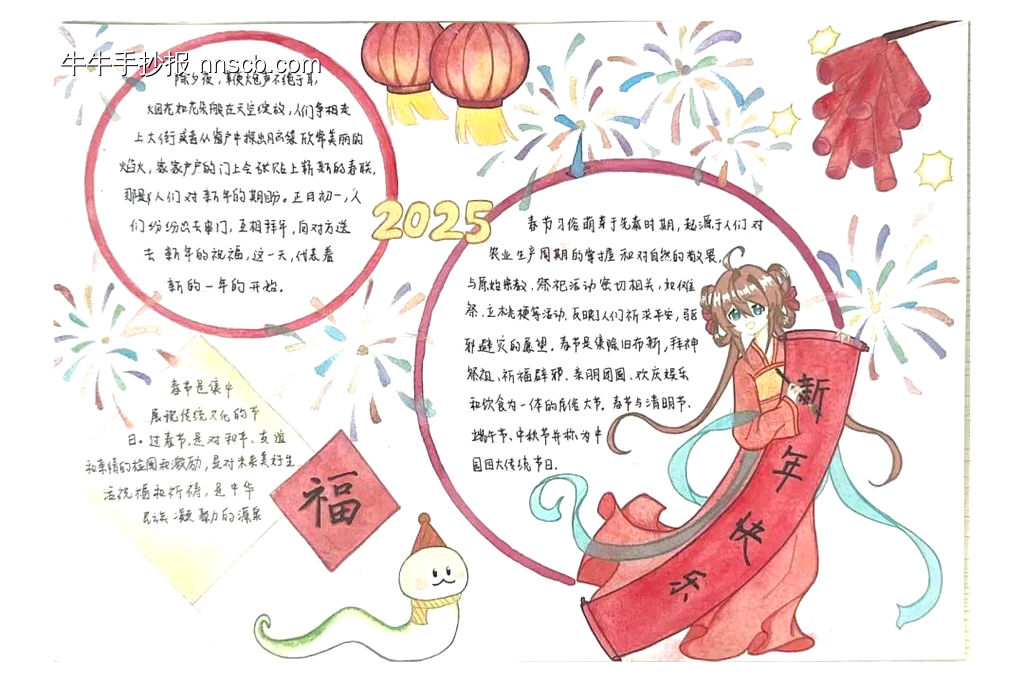 牛牛手抄报 nnscb.com
除夕夜，鞭炮声不绝于耳，
烟花和花朵般在天空绽放，人们争相走
上大街或者从窗户中探出脑袋欣赏美丽的
焰火，家家户户的门上会张贴上崭新的春联，
那是人们对新年的期盼。正月初一，人
们纷纷出去串门，互相拜年，向对方送
去新年的祝福，这一天，代表着
新的一年的开始。
2025
春节习俗萌身于先秦时期，起源于人们对
农业生产周期的掌握和对自然的敬畏，
与原始宗教、祭祀活动密切相关，如傩
祭、立桃梗等活动，反映人们祈求平安，驱
邪避灾的愿望。春节是集除旧布新，拜神
祭祖、祈福辟邪、亲朋团圆、欢庆娱乐
和饮食为一体的民俗大节。春节与清明节、
端午节、中秋节并称为中
国四大传统节日。
春节是集中
展现传统文化的节
日。过春节，是对和平、友谊
和亲情的祝愿和激励，是对未来美好生
活祝福和祈祷，是中华
民族凝聚力的源泉
福
新
年
快
乐